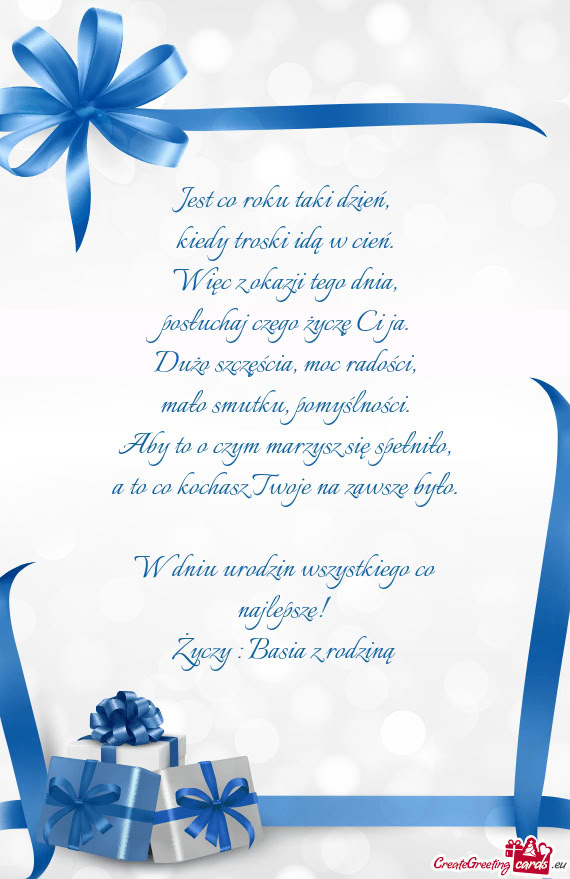 Jest co roku taki dzień,
kiedy troski idą w cień.
Więc z okazji tego dnia,
posłuchaj czego życzę Ci ja.
Dużo szczęścia, moc radości,
mało smutku, pomyślności.
Aby to o czym marzysz się spełniło,
a to co kochasz Twoje na zawsze było.
W dniu urodzin wszystkiego co
najlepsze!
Życzy : Basia z rodziną
CreateGreeting cards .eu